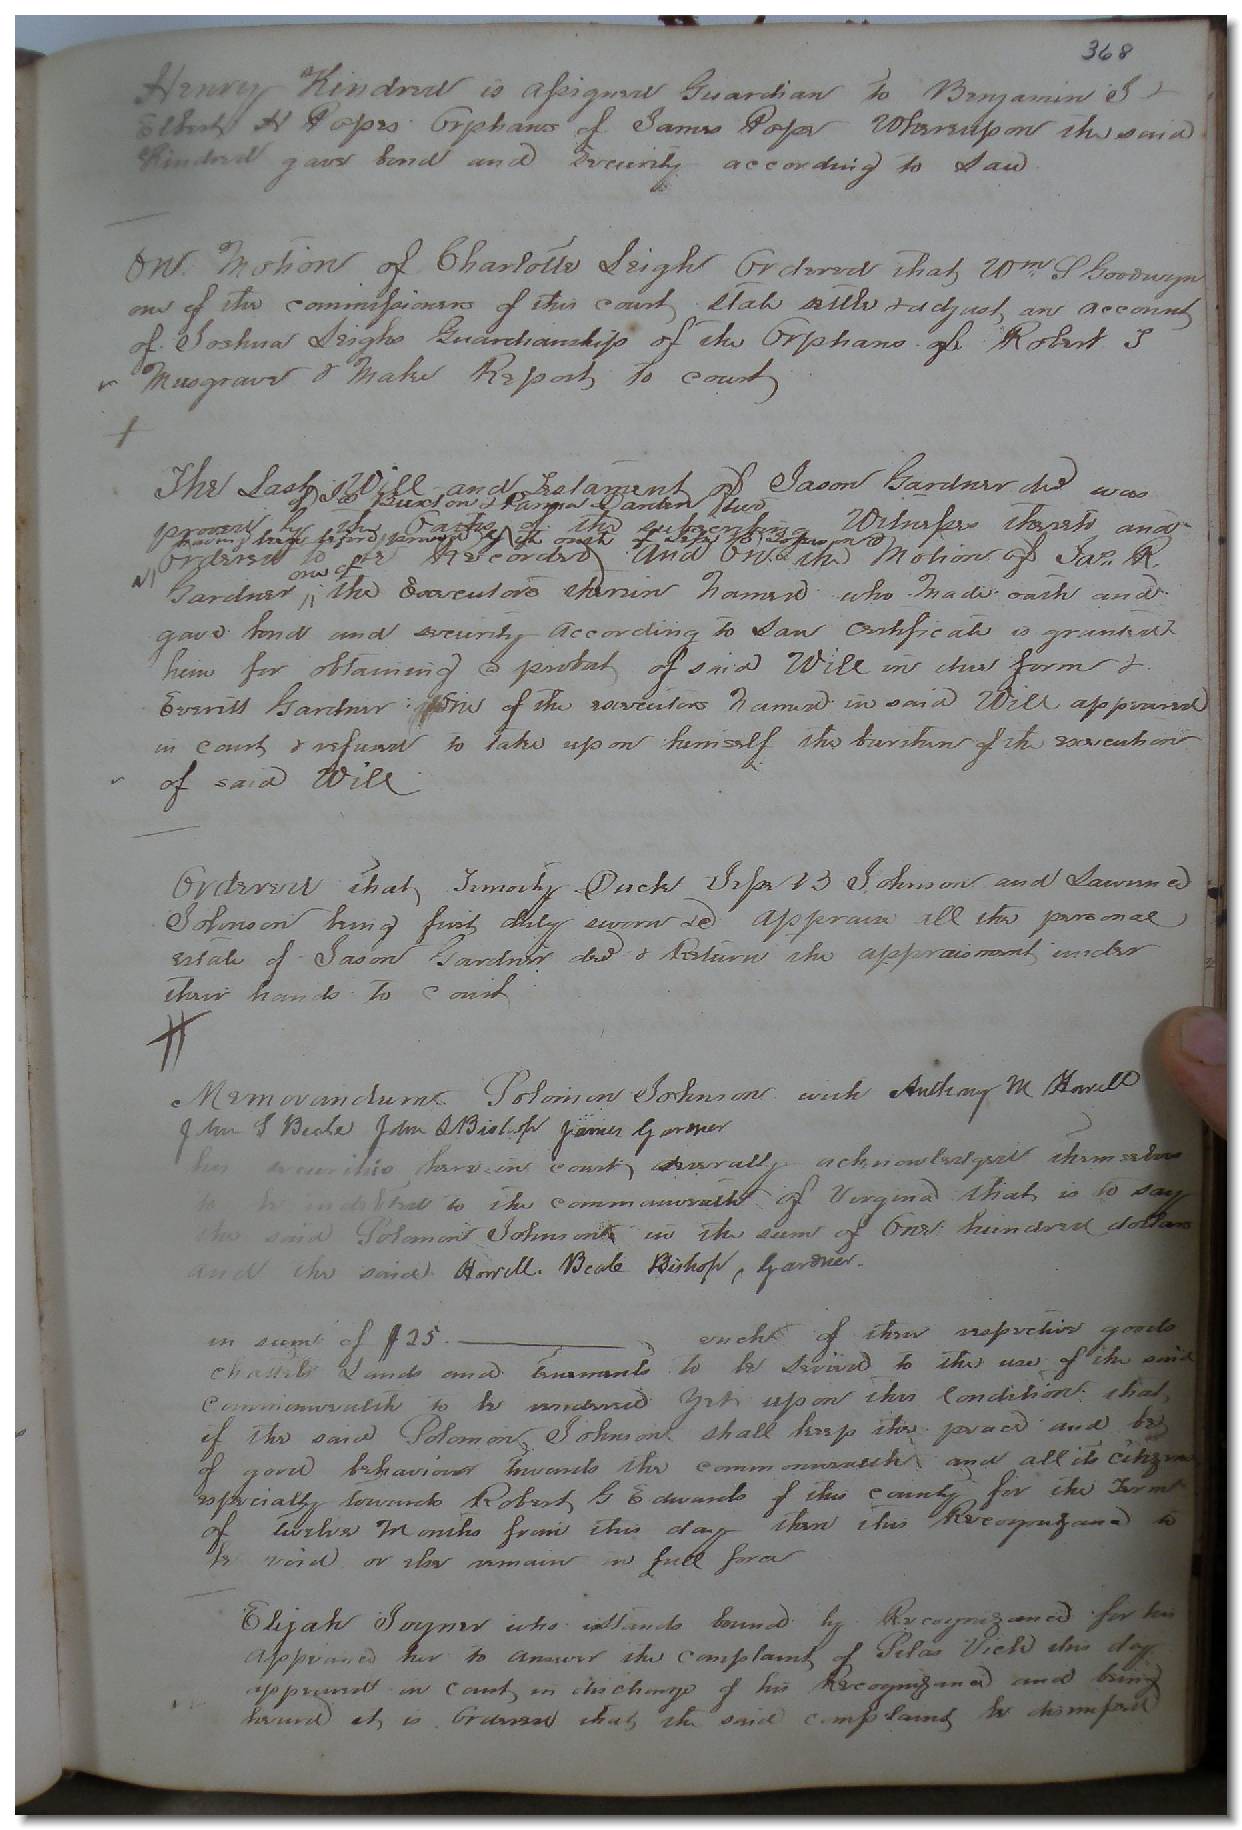 368
Henry Kindred is assigned Guardian to Benjamin S &
Elbert H Popes Orphans of James Pope Whereupon the said
Kindred gave bond and security according to Law
On Motion of Charlotte Leigh Ordered that Wm S Goodwyn
one of the commissioners of this court state settle & adjust an account
of Joshua Leighs Guardianship of the Orphans of Robert S
Musgrave & Make Report to court
The Last Will and Testament of Jason Gardner decd was
of Buxton & Darden two
proven by the Oaths of the subscribing Witnesses thereto and
having been before proved by the oath of
ordered to be Recorded And On the Motion of Jas. R.
one of
Gardner the Executors therein Named who Made oath and
gave bond and security according to Law certificate is granted
him for obtaining a probat of said Will in due form &
Everitt Gardner one of the executors named in said Will appeared
in court & refused to take upon himself the burthen of the execution
of said Will
Ordered that Timothy Duck Johnson and Lawrence
Johnson being first duly sworn do appraise all the personal
estate of Jason Gardner decd & Return the appraisment under
their hands to court
Memorandum Solomon Johnson with Anthony M Howell
John S Beale John S Bishop James Garner
his securities here in court severally acknowledged themselves
to be indebted to the commonwealth of Virginia that is to say
the said Solomon Johnson in the sum of One hundred dollars
and the said Howell. Beale Bishop, Gardner.
in sum of $25. each of their respective goods
chattels Lands and tenements to be levied to the use of the said
commonwealth to be rendered Yet upon this Condition that
if the said Solomon Johnson shall keep the peace and be
of good behaviour towards the commonwealth and all its citizens
especially towards Robert G Edwards of this county for the Term
of twelve Months from this day then this Recognizance to
be void or else remain in full force
Elijah Joyner who stands bound by Recognizance for his
appearance her to answer the complaint of Silas Vick this day
appeared in court in discharge of his Recognizance and being
heard it is Ordered that the said complaint be dismissed